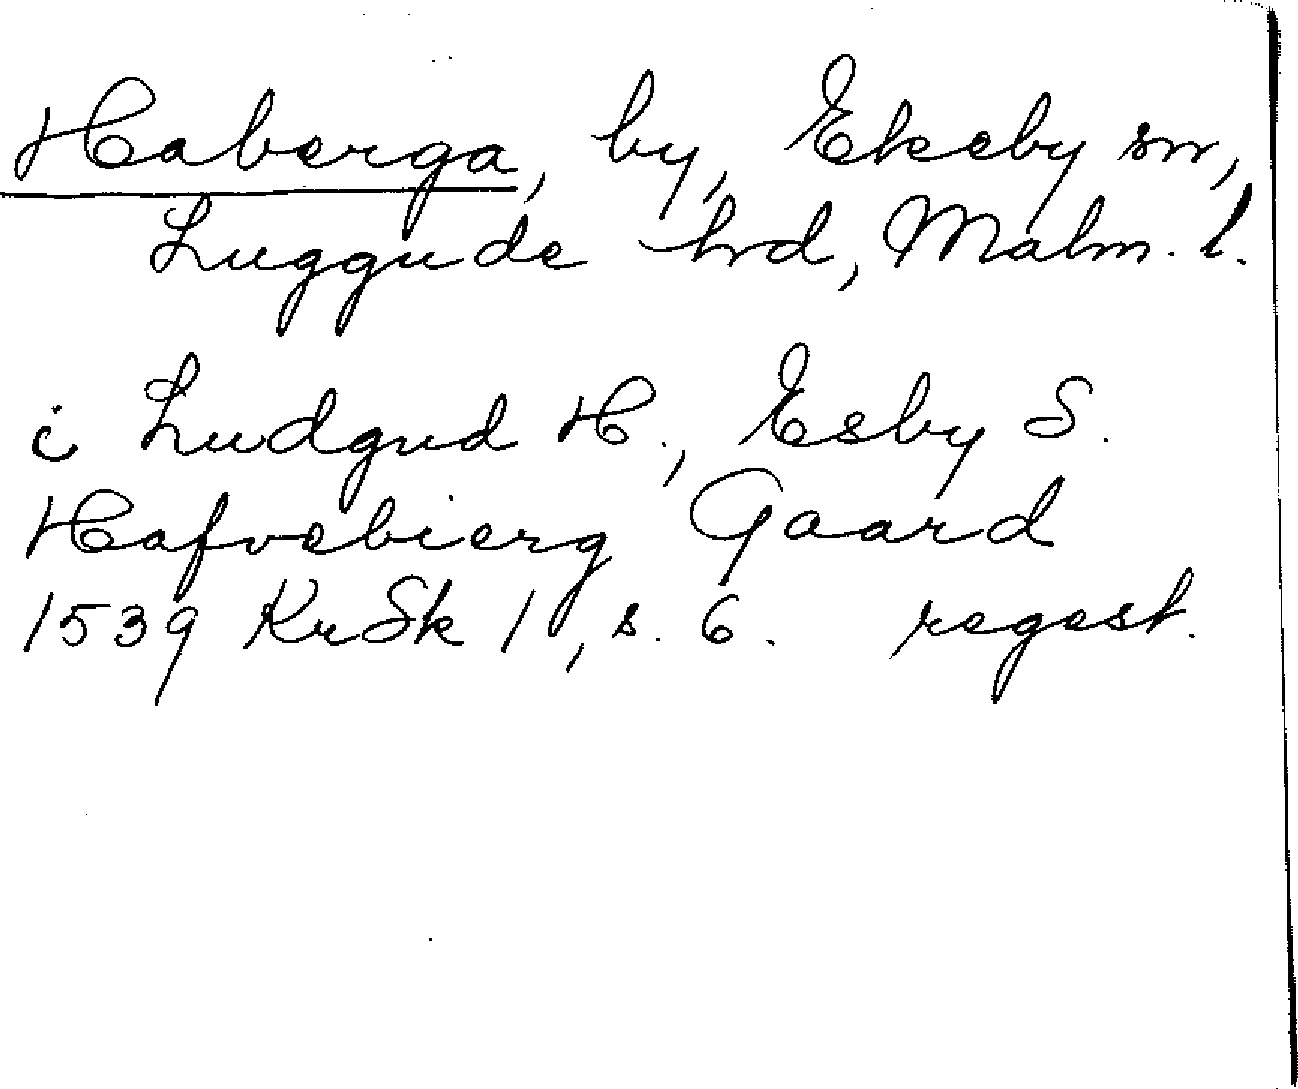 Haberga, by, Ekeby sn,
Luggude hrd, Malm. l.
i Ludgud H., Esby S.
Hafvebierg Gaard
1539 KrSk 1, s. 6. regest.